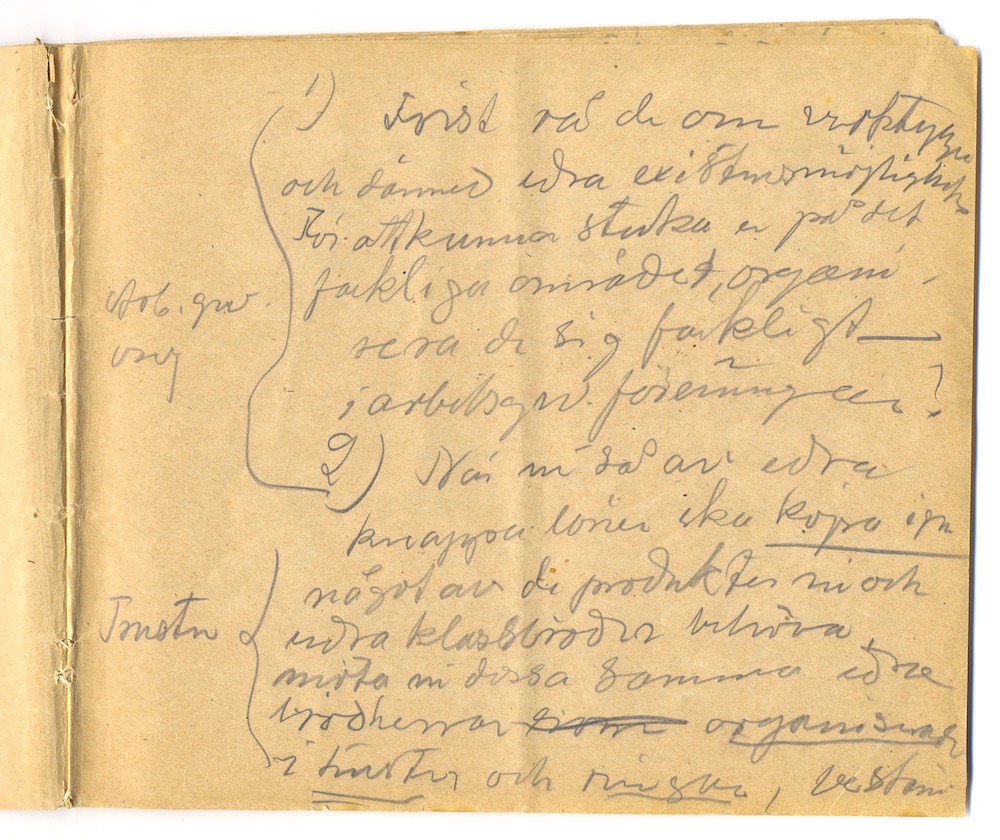 1) Först rå de om verktygen
och därmed edra existensmöjligheter
För att kunna stuka er på det
fackliga området, organi-
Arb. giv.
org
sera de sig fackligt—
i arbetsgiv. föreningen?
2) När ni så av edra
knappa löner ska köpa igen
något av de produkter ni och
Truster
edra klassbröder behöva,
möta ni dessa samma edra
brödherrar som organiserade
i truster och ringar, bestäm